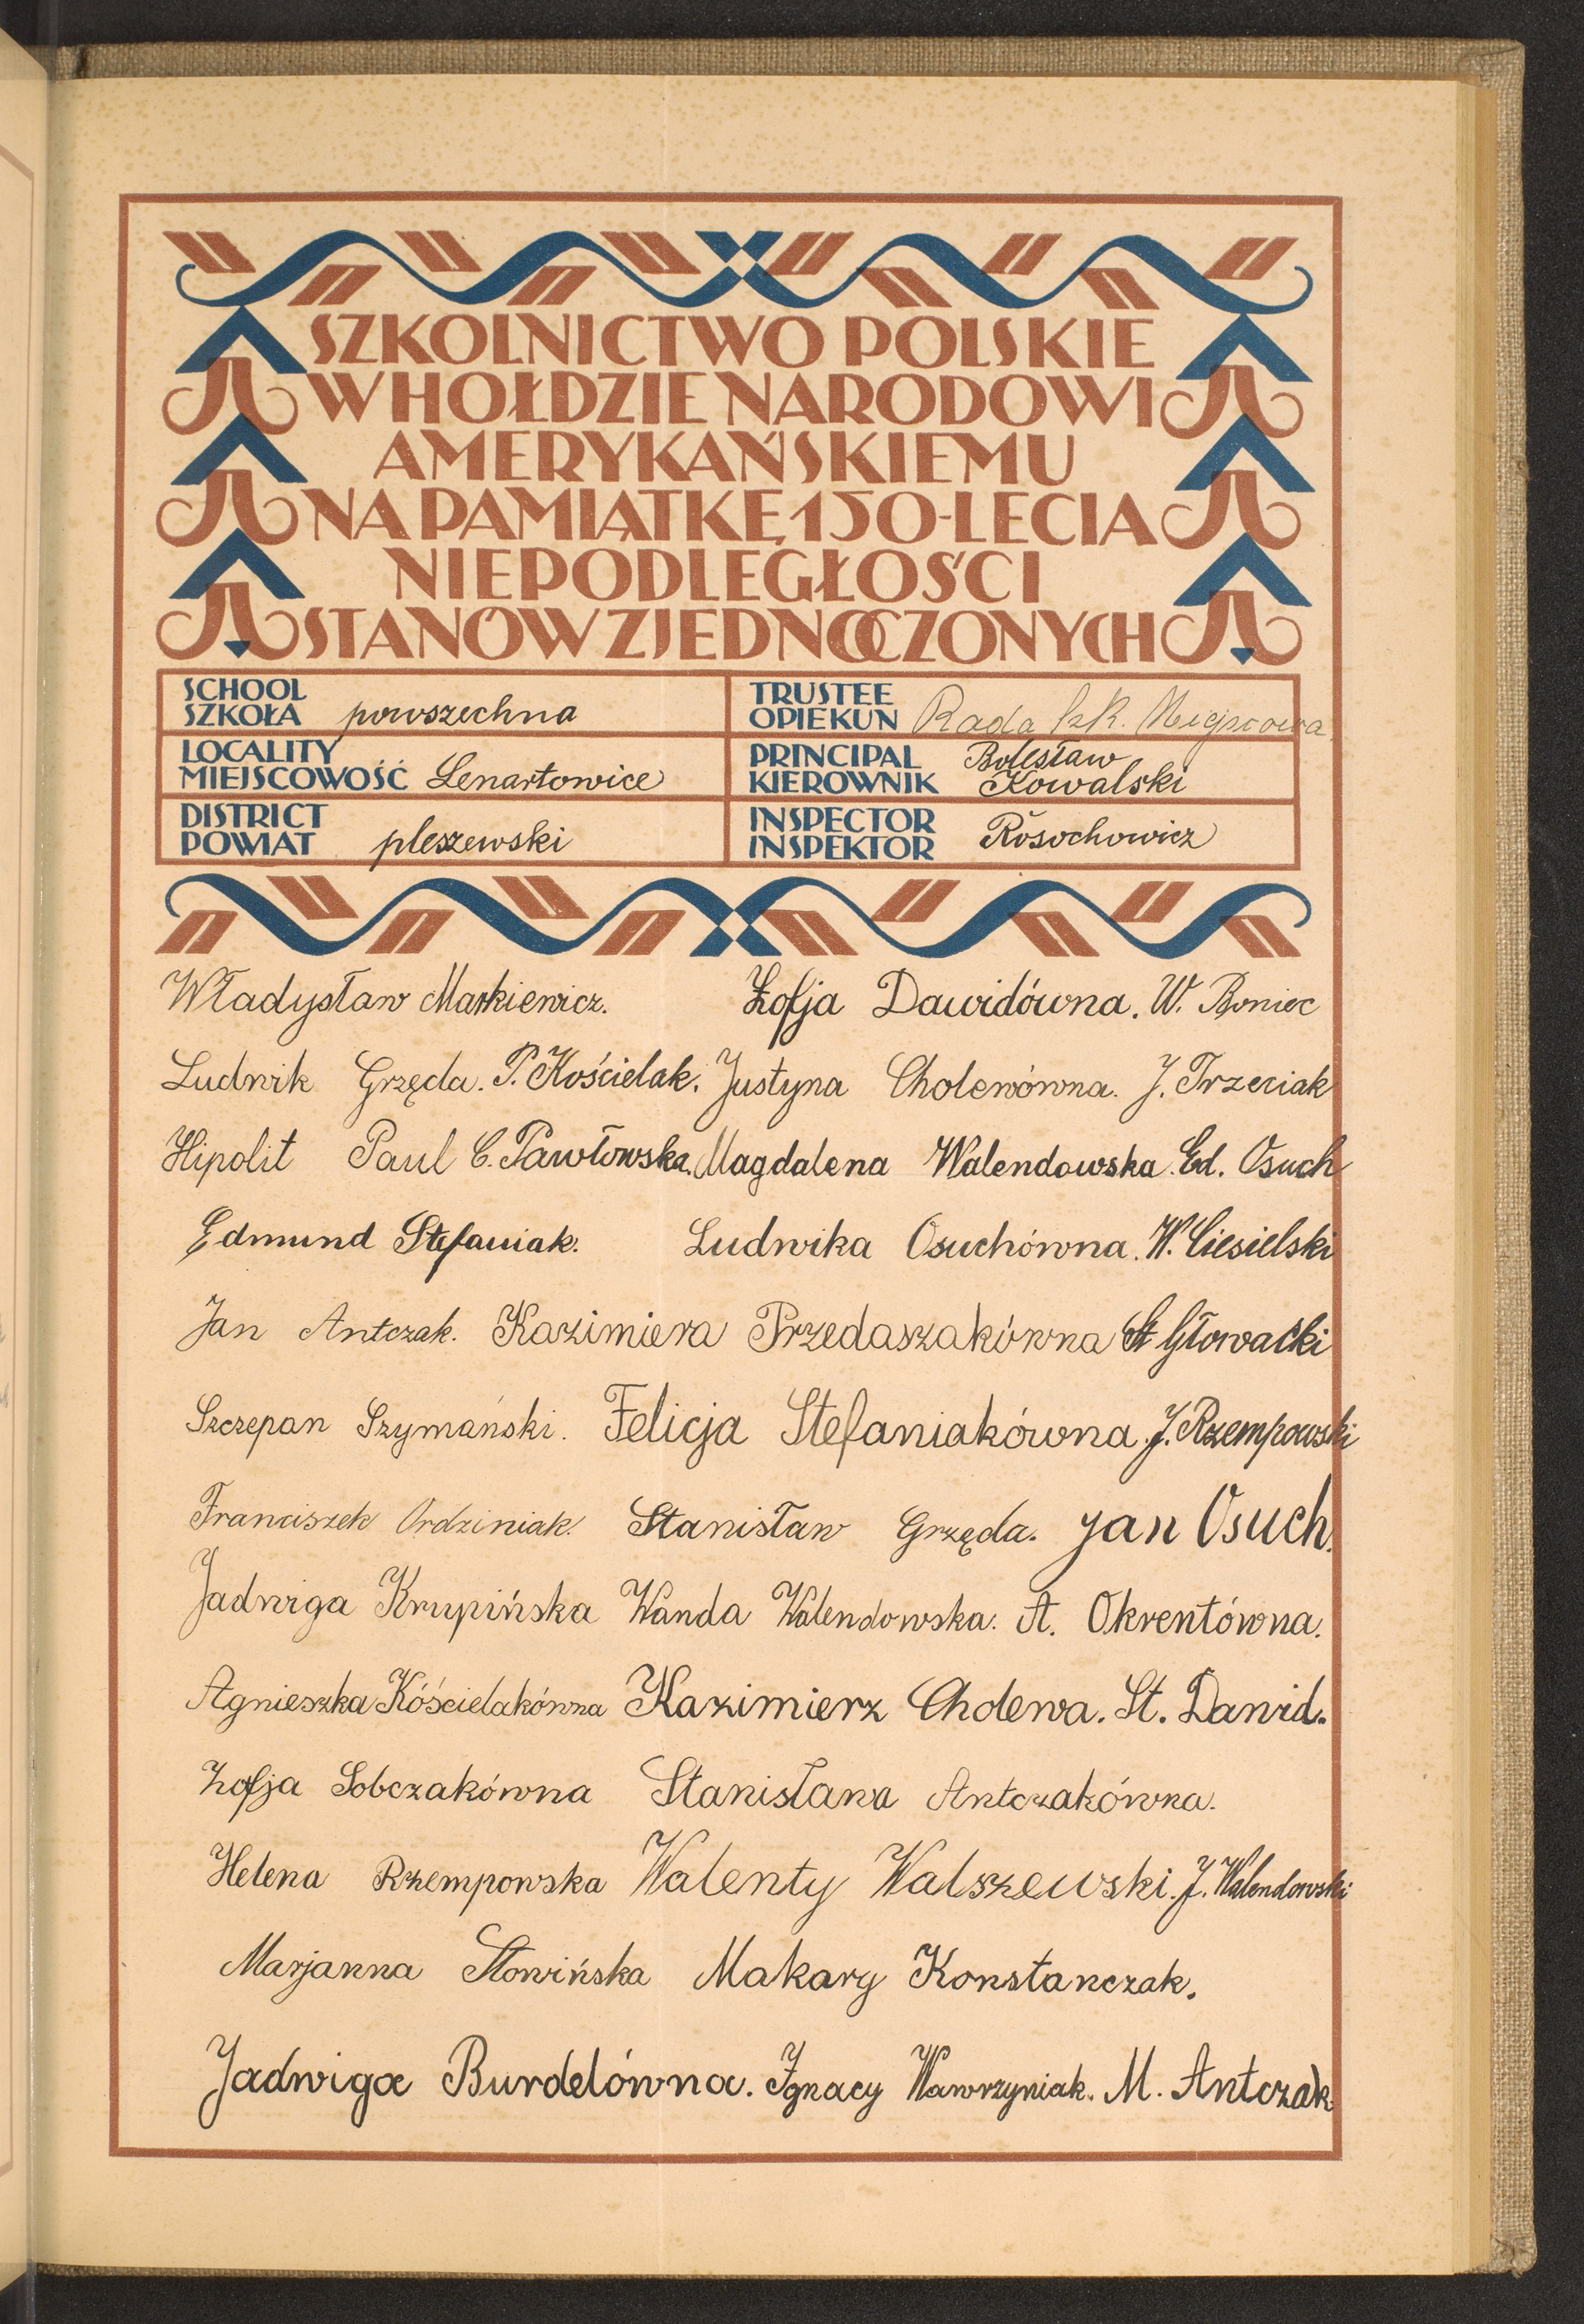 SZKOLNICTWO POLSKIE
W HOŁDZIE NARODOWI
AMERYKAŃSKIEMU
NA PAMIĄTKĘ 150-LECIA
NIEPODLEGŁOŚCI
STANÓW ZJEDNOCZONYCH
SCHOOL
SZKOŁA powszechna
TRUSTEE
OPIEKUN Rada szk. Miejscowa
LOCALITY
MIEJSCOWOŚĆ Lenartowice
PRINCIPAL Bolesław
KIEROWNIK Kowalski
DISTRICT
POWIAT pleszewski
INSPECTOR
INSPEKTOR Rosochowicz
Władysław Markiewicz. Zofja Dawidówna. W. Boniec
Ludwik Grzęda. P. Kościelak. Justyna Cholewówna. J. Trzeciak
Hipolit Paul C. Pawłowska. Magdalena Walendowska. Ed. Osuch
Edmund Stefaniak. Ludwika Osuchówna. W. Ciesielski
Jan Antczak. Kazimiera Przedaszakówna St Głowacki
Szczepan Szymański. Felicja Stefaniakówna J. Rzempowski
Franciszek Ordziniak. Stanisław Grzęda. Jan Osuch.
Jadwiga Krupińska Wanda Walendowska. A. Okrentówna.
Agnieszka Kóścielakówna Kazimierz Cholewa. St. Dawid.
Zofja Sobczakówna Stanisława Antczakówna.
Helena Rzempowska Walenty Walszewski. J. Walendowski
Marjanna Słowińska Makary Konstanczak.
Jadwiga Burdelówna. Ignacy Wawrzyniak. M. Antczak